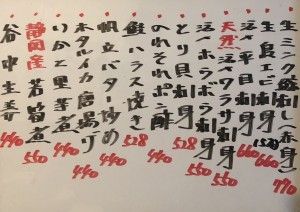 生ミンク鯨刺し(赤身) 770
生鳥エビ刺身 660
活〆平目刺身 660
天然活〆ワラサ刺身 550
活ホラボラ刺身 550
とり貝刺身 528
のれそれポン酢 440
鮭ハラス焼き 528
帆立バター炒め 440
ホタルイカ唐揚げ 440
いかと里芋煮 440
静岡産若筍煮 550
谷中生姜 440